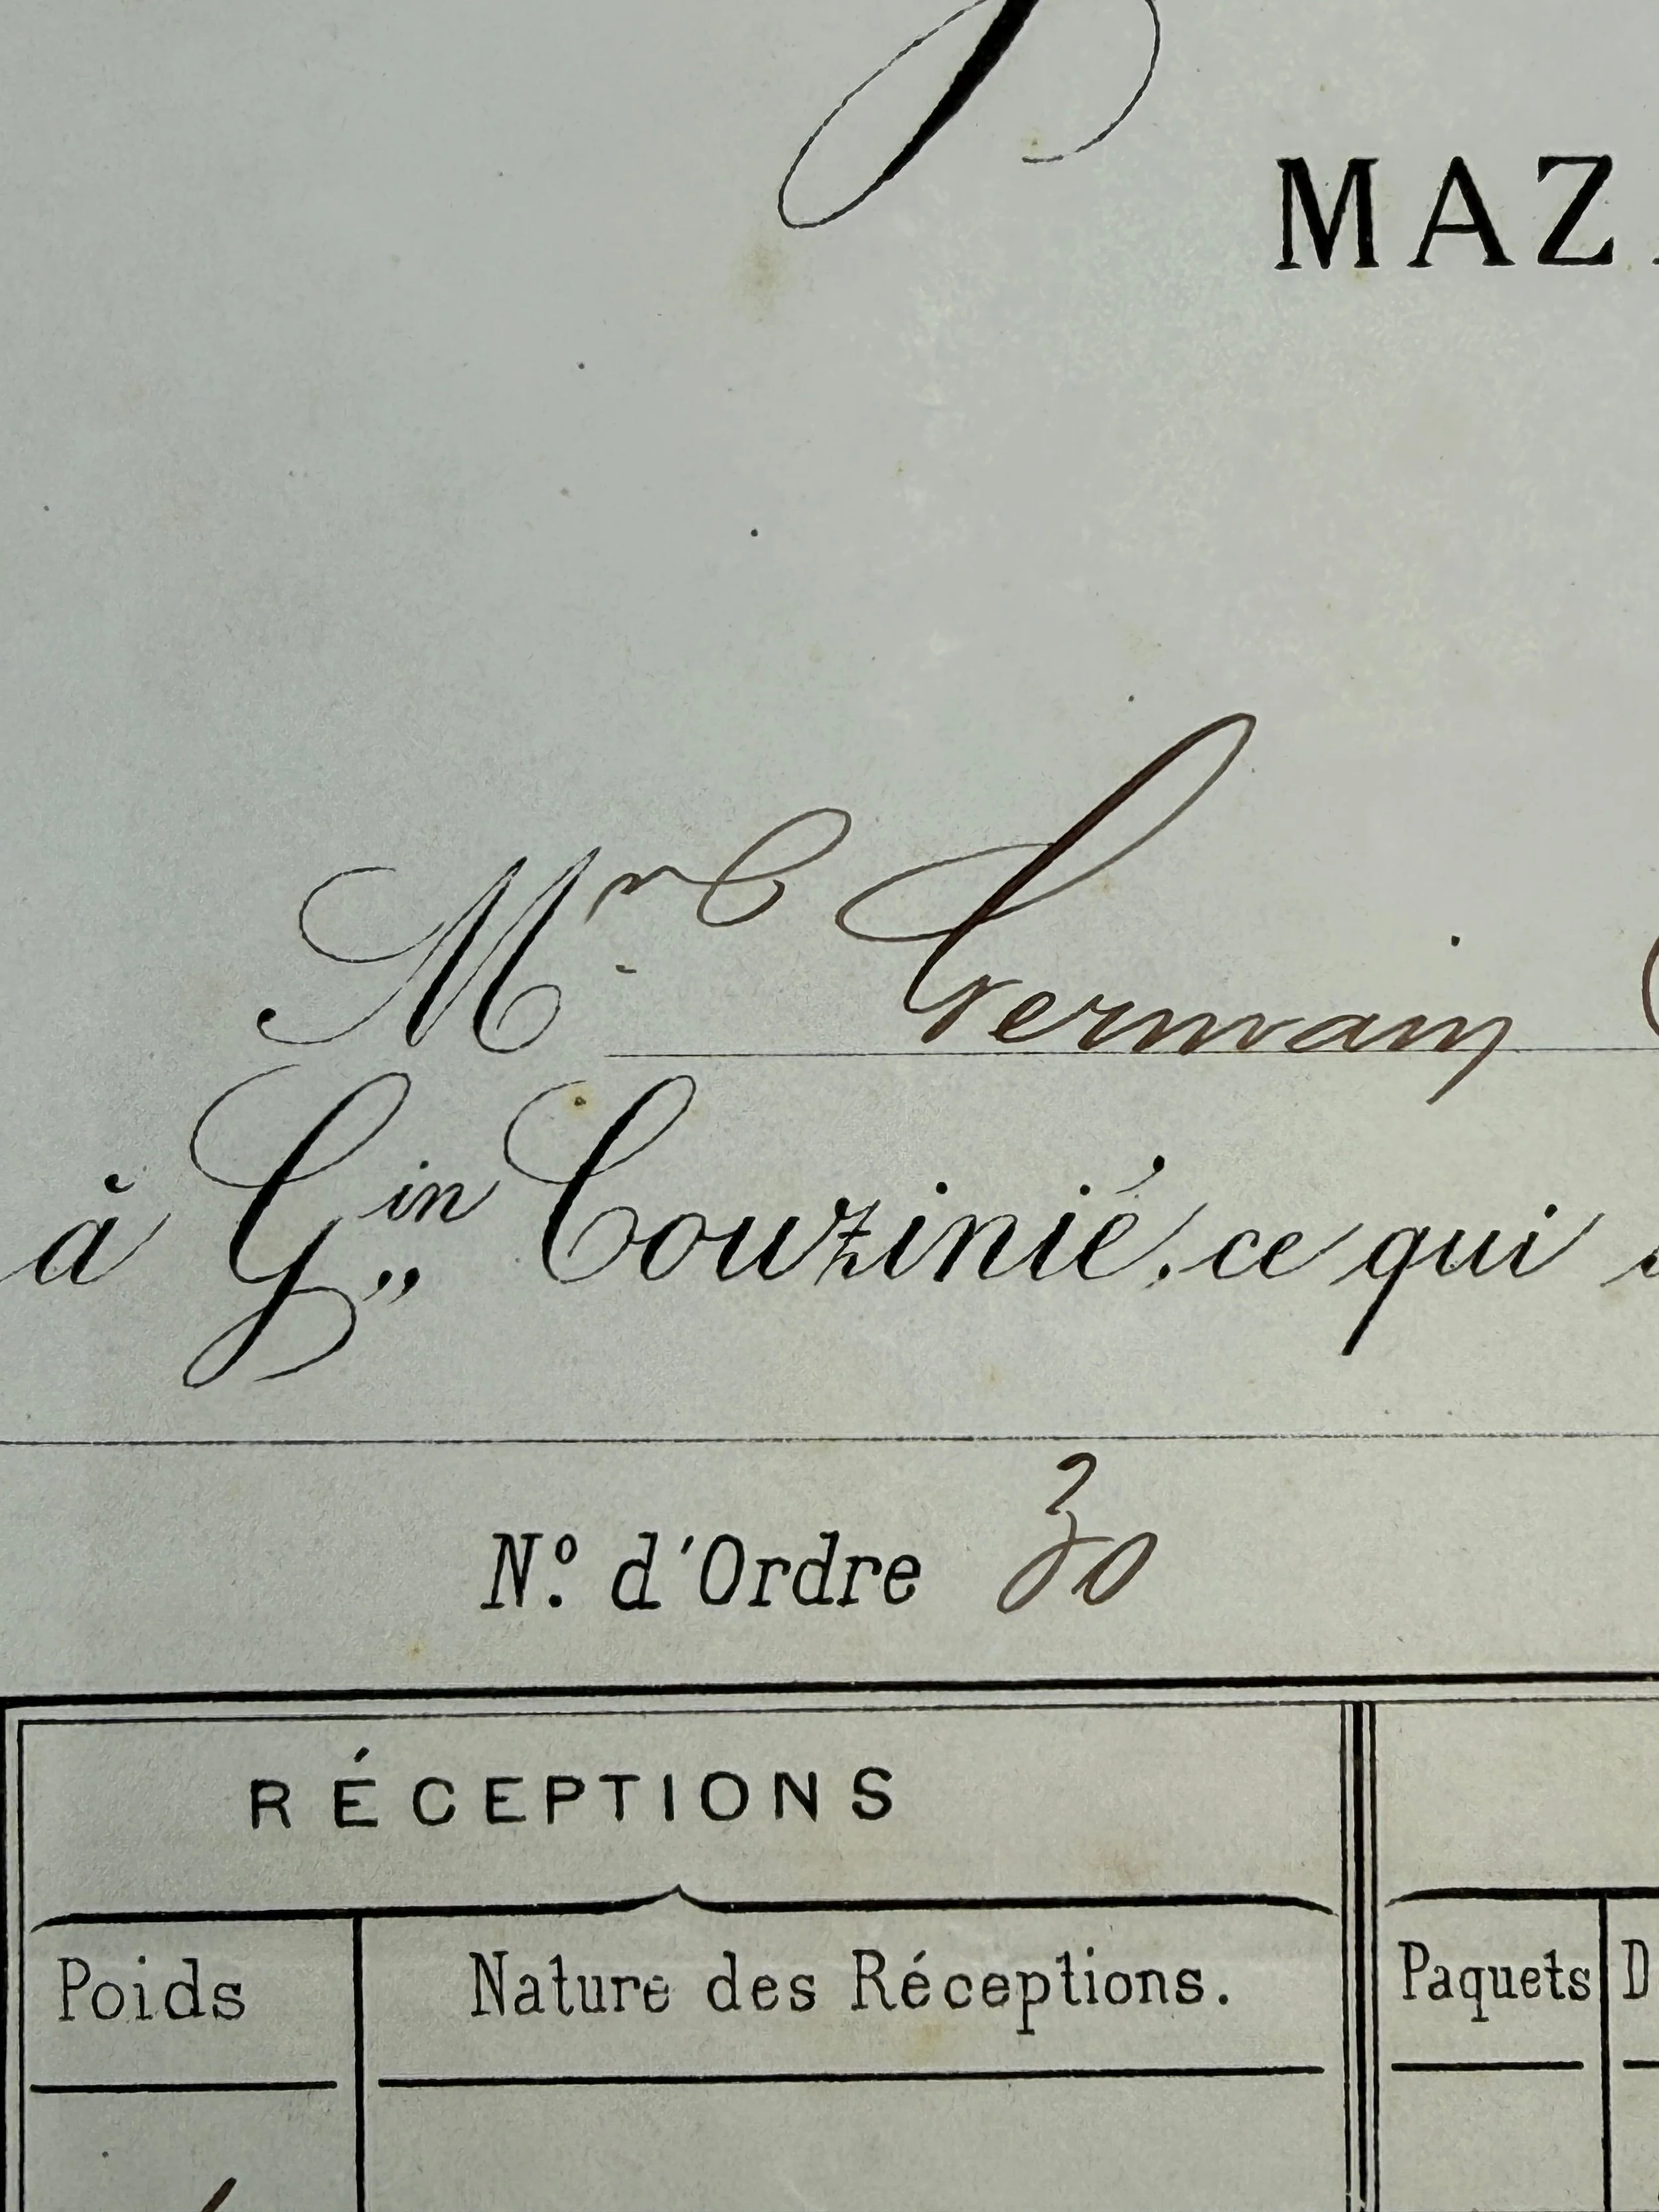 MAZ
Mr e Germain
à Gin Couzinié, ce qui
N.º d'Ordre 30
RÉCEPTIONS
Poids Nature des Réceptions. Paquets D